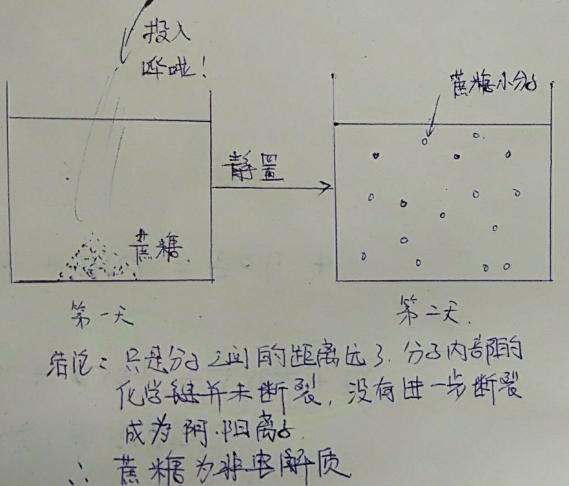 投入
哗啦!
蔗糖小分子
静置
蔗糖
第一天
第二天.
结论: 只是分子之间的距离远了. 分子内部的
化学键并未断裂, 没有进一步断裂
成为阴.阳离子.
∴ 蔗糖为非电解质